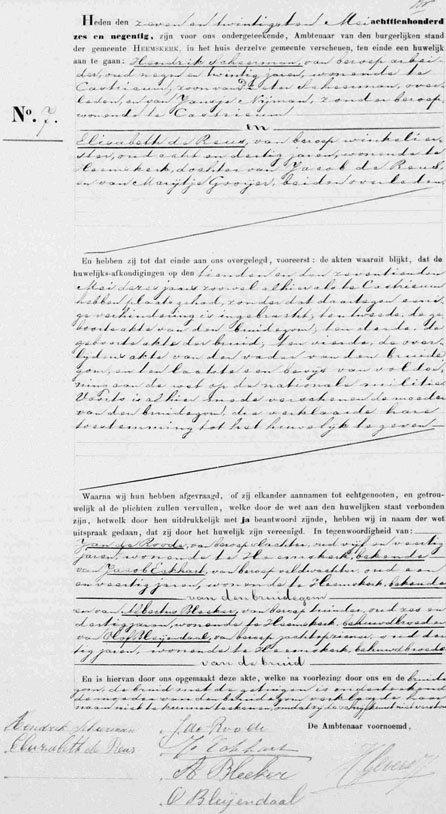 Heden den zeven en twintigsten Mei achttienhonderd
zes en negentig, zijn voor ons ondergeteekende, Ambtenaar van den burgerlijken stand
der gemeente HEEMSKERK, in het huis derzelve gemeente verschenen, ten einde een huwelijk
aan te gaan: Hendrik Scheerman, van beroep arbei-
der, oud negen en twintig jaren, wonende te
Castricum, zoon van Scheerman, over-
leden, en van Nijman, zonder beroep
wonende te Castricum
No. 7.
en
Elisabeth de Reus, van beroep winkelier-
ster, oud acht en dertig jaren, wonende te
Heemskerk, dochter van Jacob de Reus
en van Marijtje Gooijer, beiden overleden,
En hebben zij tot dat einde aan ons overgelegd, vooreerst: de akten waaruit blijkt, dat de
huwelijks-afkondigingen op den tienden en den zeventienden
Mei dezes jaars zoowel alhier als te Castricum
hebben plaats gehad, zonder dat daartegen eenige
verhindering is ingebracht, ten tweede, de ge-
boorteakte van den bruidegom, ten derde, de
geboorteakte der bruid, ten vierde, de over-
lijdensakte van den vader van den bruide-
gom, en ten laatste een bewijs van voldoe-
ning aan de wet op de nationale militie
Voorts is alhier mede verschenen de moeder
van den bruidegom, die verklaarde hare
toestemming tot het huwelijk te geven
Waarna wij hun hebben afgevraagd, of zij elkander aannamen tot echtgenooten, en getrou-
welijk al de plichten zullen vervullen, welke door de wet aan den huwelijken staat verbonden
zijn, hetwelk door hen uitdrukkelijk met ja beantwoord zijnde, hebben wij in naam der wet
uitspraak gedaan, dat zij door het huwelijk zijn vereenigd. In tegenwoordigheid van:
Jan de Roode, van beroep, oud vijf en veertig
jaren, wonende te Heemskerk, bekende
van Jacob Eckhart, van beroep veldwachter, oud een
en veertig jaren, wonende te Heemskerk, bekende
van den bruidegom
en van Albertus Bleeker, van beroep tuinder, oud zes en
dertig jaren, wonende te Heemskerk, behuwdbroeder
van Olof Bleijendaal, van beroep, oud der-
tig jaren, wonende te Heemskerk, behuwdbroeder
van de bruid
En is hiervan door ons opgemaakt deze akte, welke na voorlezing door ons en de bruide-
gom, de bruid met de getuigen is onderteekend
de moeder van den bruidegom verklaarde haren
naam niet te kunnen teekenen,
De Ambtenaar voornoemd,
Hendrik Scheerman
J. de Roode
Elizabeth de Reus
J. Eckhart
A Bleeker
O Bleijendaal